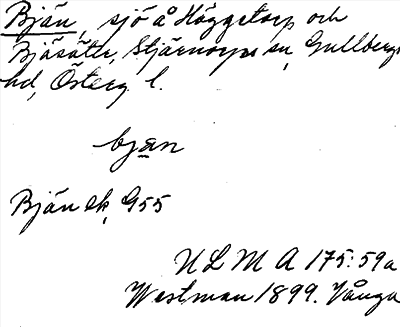 Bjän, sjö å Höggetorp och
Bjäsätter, Stjärnorps sn, Gullbergs
hd, Österg. l.
bjan
Bjän Ek, G55
ULMA 175:59a
Westman 1899. Vånga